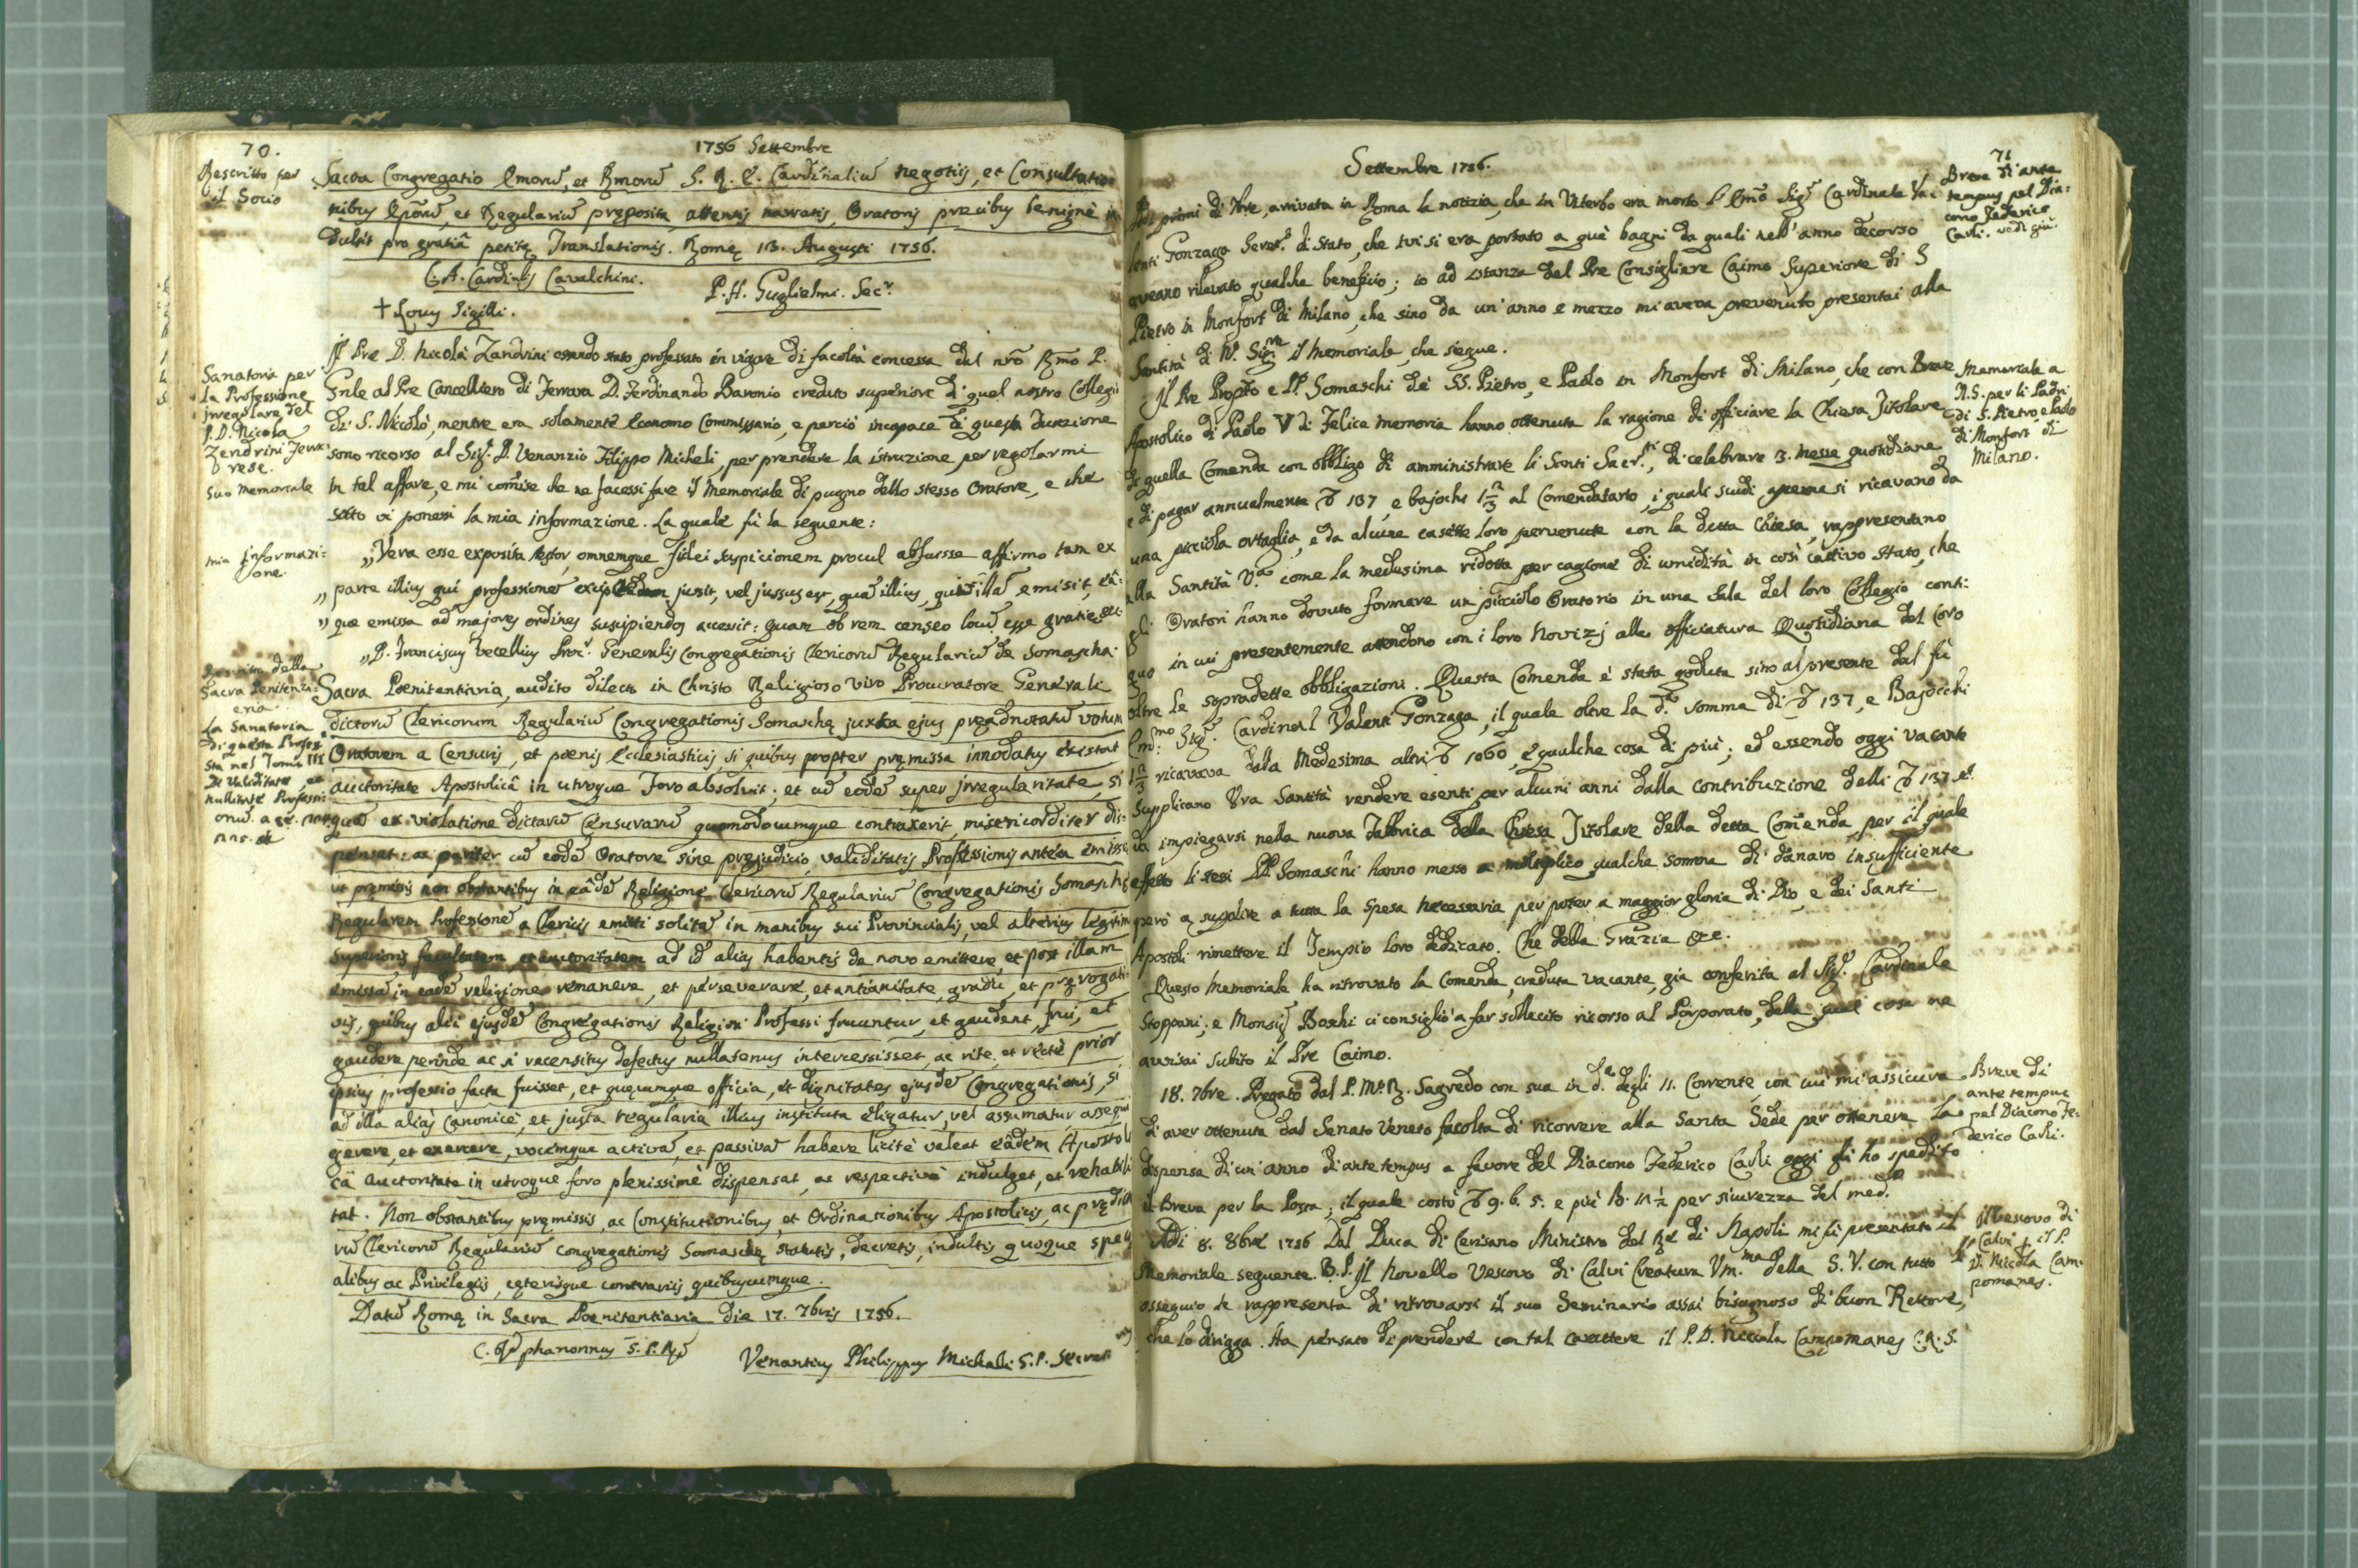 70.
1756 Settembre
Rescritto per
il Socio
Sacra Congregatio Emorũ, et Rmorũ S. R. E. Cardinaliũ negotijs, et Consultatio=
nibus Epõrũ, et Regulariũ pręposita, attentis narratis, Oratoris precibus benignè in
dulsit pro gratiâ petitę Translationis. Romę 13. Augusti 1756.
C. A. Cardinlis Cavalchini.
P. H. Guglielmi. Secr.
+ Locus Sigilli.
Sanatoria per
la Professione
irregolare del
P. D. Nicola
Zendrini Ferra
rese.
Suo Memoriale
Il Pre D. Nicolà Zandrini essendo stato professato in vigore di facoltà concessa dal nrõ Rmo P.
Gnle al Pre Cancelliero di Ferrara D. Ferdinando Baronio creduto superiore di quel nostro Collegio
di S. Nicolò, mentre era solamente Economo Commissario, e perciò incapace di questa
sono ricorso al Sig. D. Venanzio Filippo Micheli, per prendere la istruzione per regolarmi
in tal affare, e mi comise che ne facessi fare il Memoriale di pugno dello stesso Oratore, e che
sotto vi ponessi la mia informazione. La quale fù la seguente:
mia informazi=
one.
„ Vera esse exposita testor, omnemque fidei suspicionem procul abfuisse affirmo tam ex
„ parte illius qui professionẽ jussit, vel jussus est, quã illius, qui illã emisit, eâ=
„ que emissa ad majores ordines suscipiendos accessit: quam ob rem censeo locũ esse gratię
„ D. Franciscus Vecellius Procr. Generalis Congregationis Clericorũ Regulariũ de Somascha.
della
Sacra Peniten
eria.
La Sanatoria
di questa Profes
sta nel Tomo III
De Validitate, et
nullitate Professi
onũ.
Sacra Poenitentiaria, audito dilecto in Christo Religioso viro Procuratore Generali
dictorũ Clericorum Regulariũ Congregationis Somaschę juxta ejus pręadnotatũ votum
Oratorem a Censuris, et poenis Ecclesiasticis, si quibus propter pręmissa innodatus existat
auctoritate Apostolicâ in utroque Foro absolvit; et cũ eodẽ super irregularitate, si
quã ex violatione dictarũ Censurarũ quomodocumque contraxerit, misericorditer dis=
pensat: ac pariter cũ eodẽ Oratore sine prejudicio validitatis Professionis antea emissę
ut pręmissis non obstantibus in eâdẽ Religione Clericorũ Regulariũ Congregationis Somaschę
Regularem Professionẽ a Clericis emitti solitã in manibus sui Provincialis, vel alterius legitimi
Superioris facultatem, et auctoritatem ad id alias habentis de novo emittere, et post illam
emissã in eâdẽ religione remanere, et perseverare, et antianitate, gradu, et pręrogati=
vis, quibus alii ejusdẽ Congregationis Religiosi Professi fruuntur, et gaudent, frui, et
gaudere perinde ac si recensitus defectus nullatenus intercessisset, ac rite, et rectè prior
ipsius professio facta fuisset, et quęcumque officia, et dignitates ejusdẽ Congregationis, si
ad illa alias Canonicè, et juxta regularia illius instituta eligatur, vel assumatur, assequi
gerere, et exercere, vocemque activã, et passivã habere licitè valeat eâdem Apostoli
câ auctoritate in utroque foro plenissimè dispensat, ac respectivè indulget, et rehabili
tat. Non obstantibus pręmissis, ac Constitutionibus, et Ordinationibus Apostolicis, ac prędicto
rũ Clericorũ Regulariũ Congregationis Somaschę statutis, decretis, indultis quoque speci
alibus ac Privilegijs, cęterisque contrarijs quibuscumque.
Datũ Romę in Sacra Poenitentiaria die 17. 7bris 1756.
Venantius Philippus Micheli S. P. Secret
Settembre 1756.
71
Breve di ante
tempus pel Dia=
cono Federico
Carli. vedi giù.
primi di 7bre, arrivata in Roma la notizia, che in Viterbo era morto l'Emõ Sigr Cardinale Va=
lenti Gonzaga Segret.o di Stato, che ivi si era portato a què bagni da quali nell'anno decorso
aveano rilevato qualche beneficio; io ad istanza del Pre Consigliere Caimo Superiore di S
Pietro in Monfort di Milano, che sino da un'anno e mezzo mi aveva prevenuto presentai alla
Santità di N. Sigre il Memoriale, che segue.
Memoriale a
N. S. per li Padri
di S. Pietro e Paolo
di Monfort di
Milano.
Il Pre Propto e PP. Somaschi de SS. Pietro, e Paolo in Monfort di Milano, che con Breve
Apostolico di Paolo V di felice memoria hanno ottenuta la ragione di officiare la Chiesa Titolare
di quella Comenda con obbligo di amministrare li Santi Sacr.ti, di celebrare 3. Messe quotidiane
e di pagar annualmente 137, e bajochi al Comendatario, i quali scudi appena si ricavano da
una picciola ortaglia, e da alcune casette loro pervenute con la detta Chiesa, rappresentano
alla Santità V.a come la medesima ridotta per cagione di umidità in così cattivo stato, che
gli Oratori hanno dovuto formare un picciolo Oratorio in una Sala del loro Collegio conti=
guo in cui presentemente attendono con i loro Novizj alla officiatura Quotidiana del Coro
oltre le sopradette obbligazioni. Questa Comenda è stata goduta sino al presente dal fù
Em.mo Sigr. Cardinal Valenti Gonzaga, il quale oltre la d.a somma di 137, e Bajocchi
ricavava dalla Medesima altri 1060, e qualche cosa di più; ed essendo oggi vacante
supplicano Vra Santità rendere esenti per alcuni anni dalla contribuzione delli 137
da impiegarsi nella nuova Fabbrica della Chiesa Titolare della detta Comenda, per il quale
effetto li stessi PP. Somaschi hanno messo a moltiplico qualche somma di danaro insufficiente
però a supplire a tutta la spesa necessaria per poter a maggior gloria di Dio, e dei Santi
Apostoli rimettere il Tempio loro dedicato. Che della Grazia &c.
Questo Memoriale ha ritrovato la Comenda, creduta vacante, gia conferita al Sigr. Cardinale
Stoppani; e Monsigr Boschi ci consigliò a far sollecito ricorso al Porporato, della qual cosa ne
avvisai subito il Pre Caimo.
Breve di
ante tempus
pel Diacono Fe=
derico Carli.
18. 7bre. Pregato dal P. Mro. Sagredo con sua in d.a degli 11. Corrente, con cui mi assicura
di aver ottenuta dal Senato Veneto facolta di ricorrere alla Santa Sede per ottenere la
dispensa di un'anno di ante tempus a favore del Diacono Federico Carli oggi gli ho spedito
il Breve per la Posta; il quale costò 9. b. 5. e più per sicurezza del med.o
Il Vescovo di
Calvi per il P.
D. Nicola Cam=
pomanes.
Adi 8. 8bre 1756 Dal Duca di Cerisano Ministro del Rè di Napoli mi fù presentato il
Memoriale seguente. B. P. Il novello Vescovo di Calvi Creatura Vm.ma della S. V. con tutto l'
ossequio le rappresenta di ritrovarsi il suo Seminario assai bisognoso di buon Rettore,
che lo dirigga. Ha pensato di prendere con tal carattere il P. D. Niccola Campomanes C. R. S.